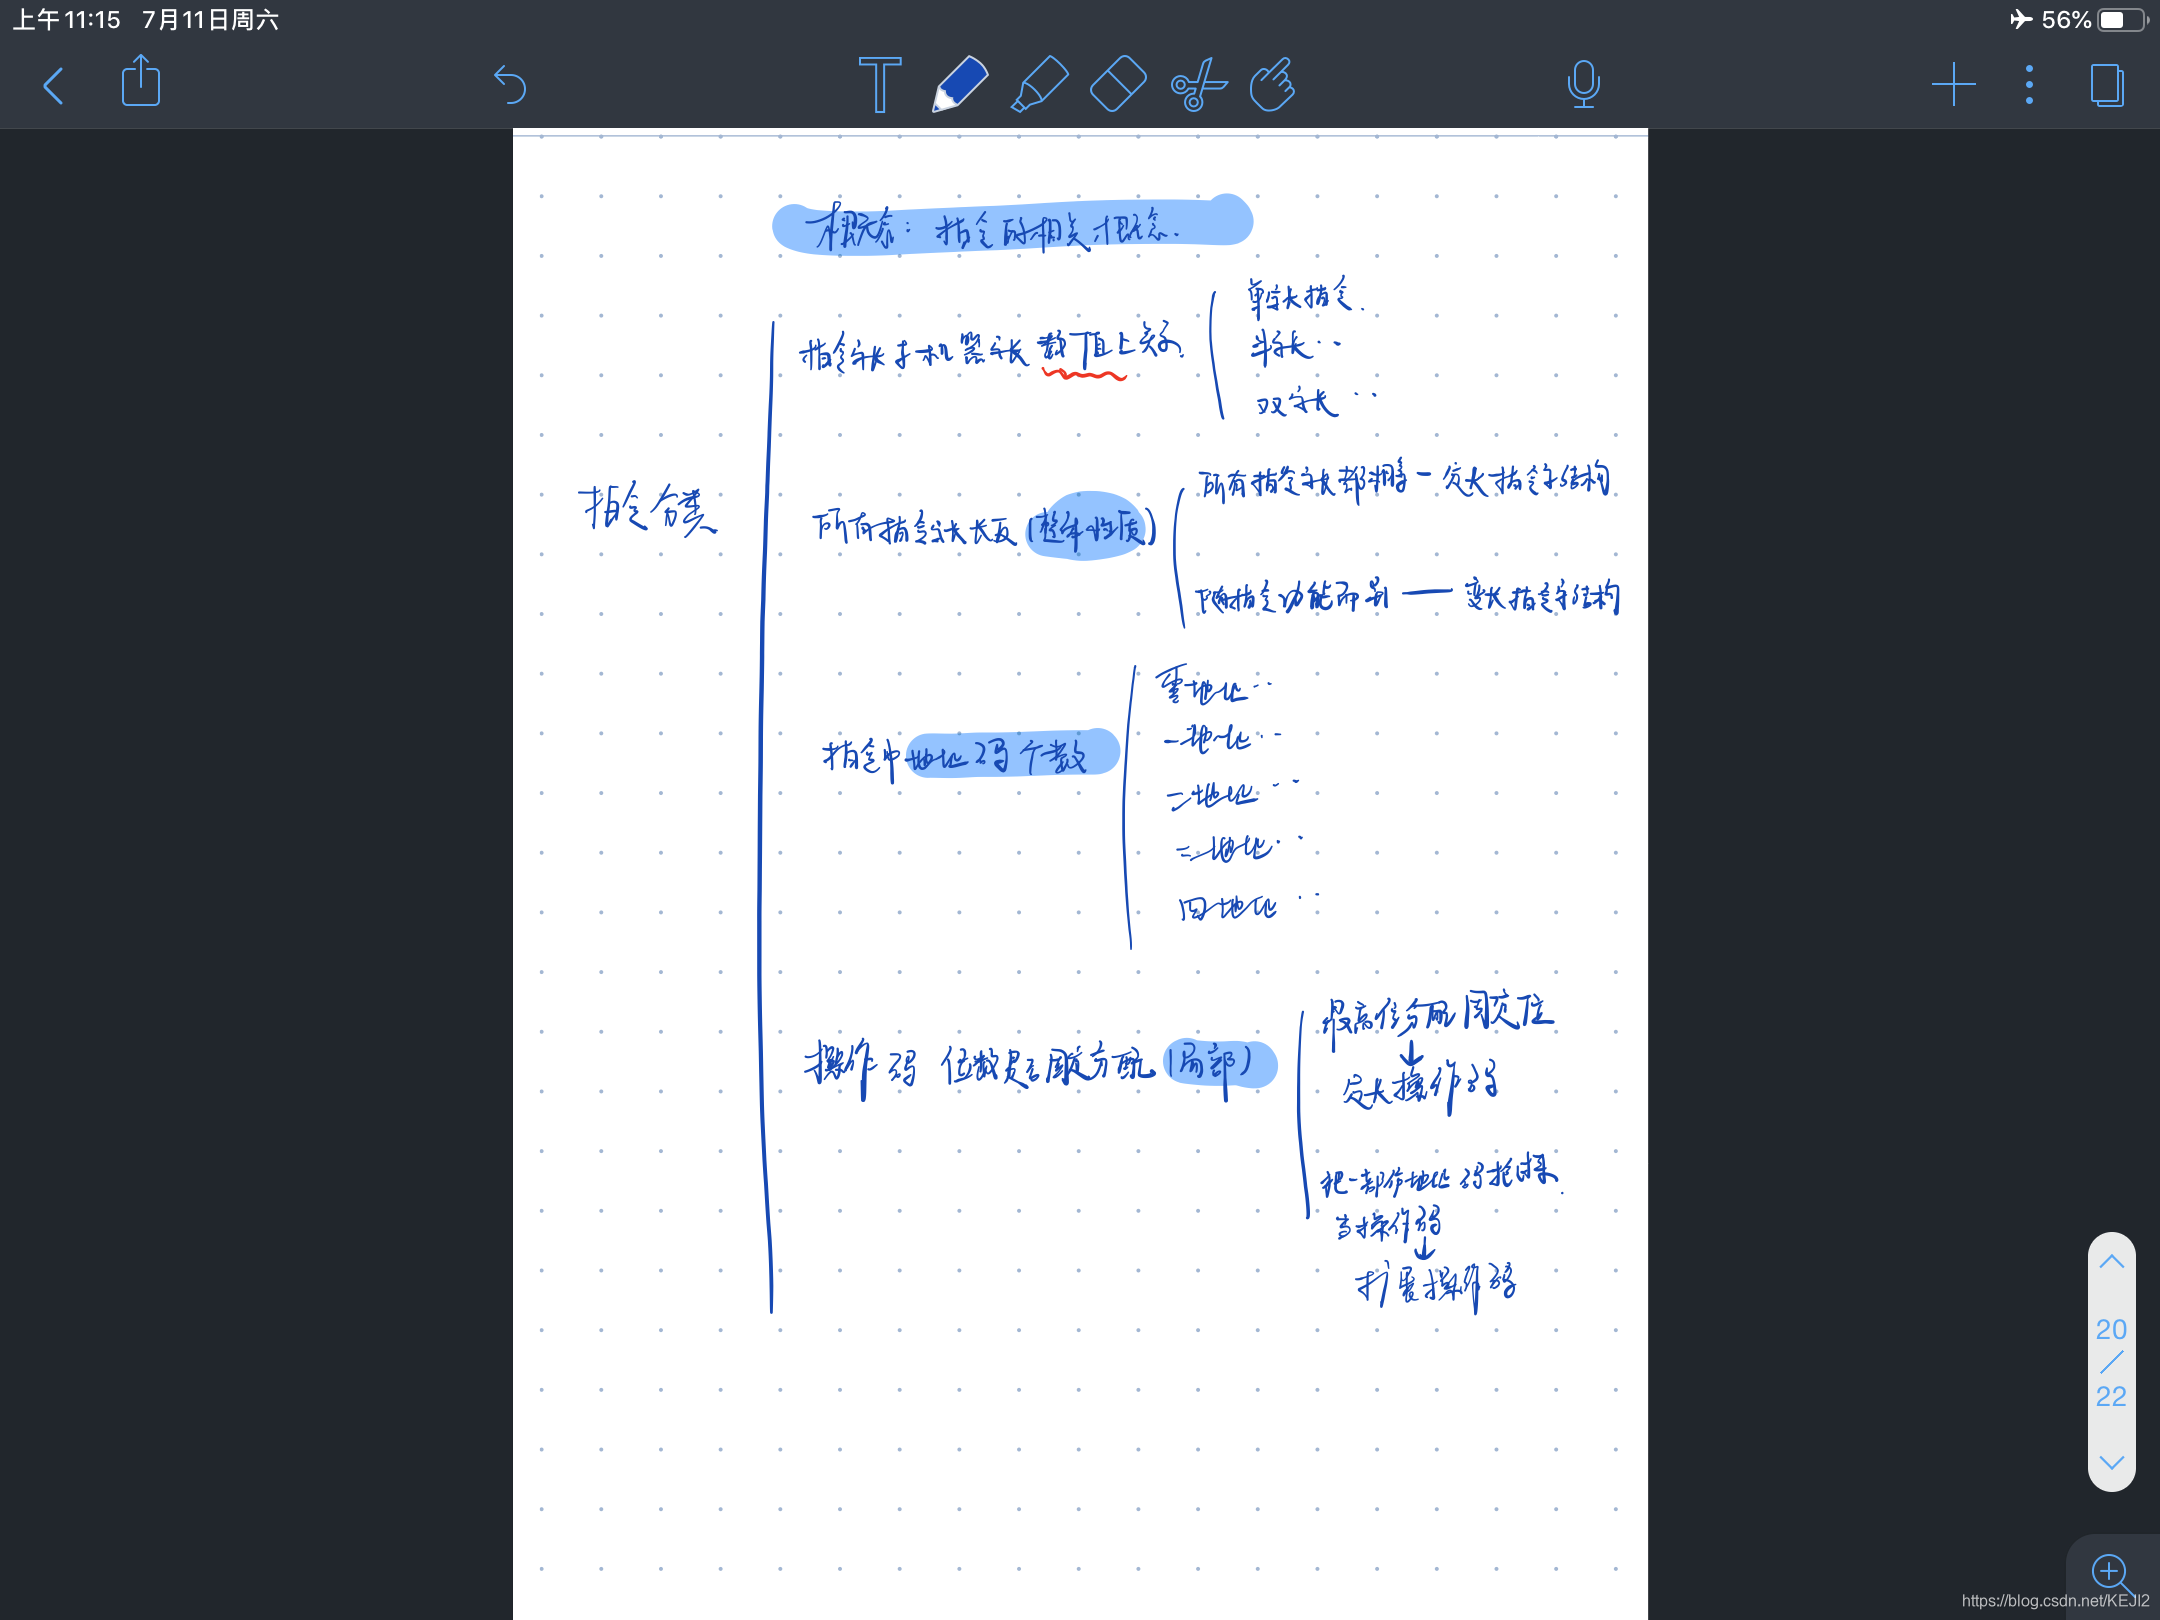 上午11:15 7月11日周六
56%
T
概念：指令的相关概念.
指令分类
指令字长与机器字长数值上关系.
单字长指令.
半字长··
双字长··
所有指令字长长度(整体性质)
所有指令字长都相等一定长指令字结构
随指令功能而异——变长指令字结构
指令中地址码个数
零地址··
一地址··
二地址··
三地址··
四地址··
操作码 位数是否固定分配(局部)
最高位分配固定位
↓
定长操作码
把一部分地址码抢来.
当操作码
↓
扩展操作码
20
/
22
https://blog.csdn.net/KEJI2